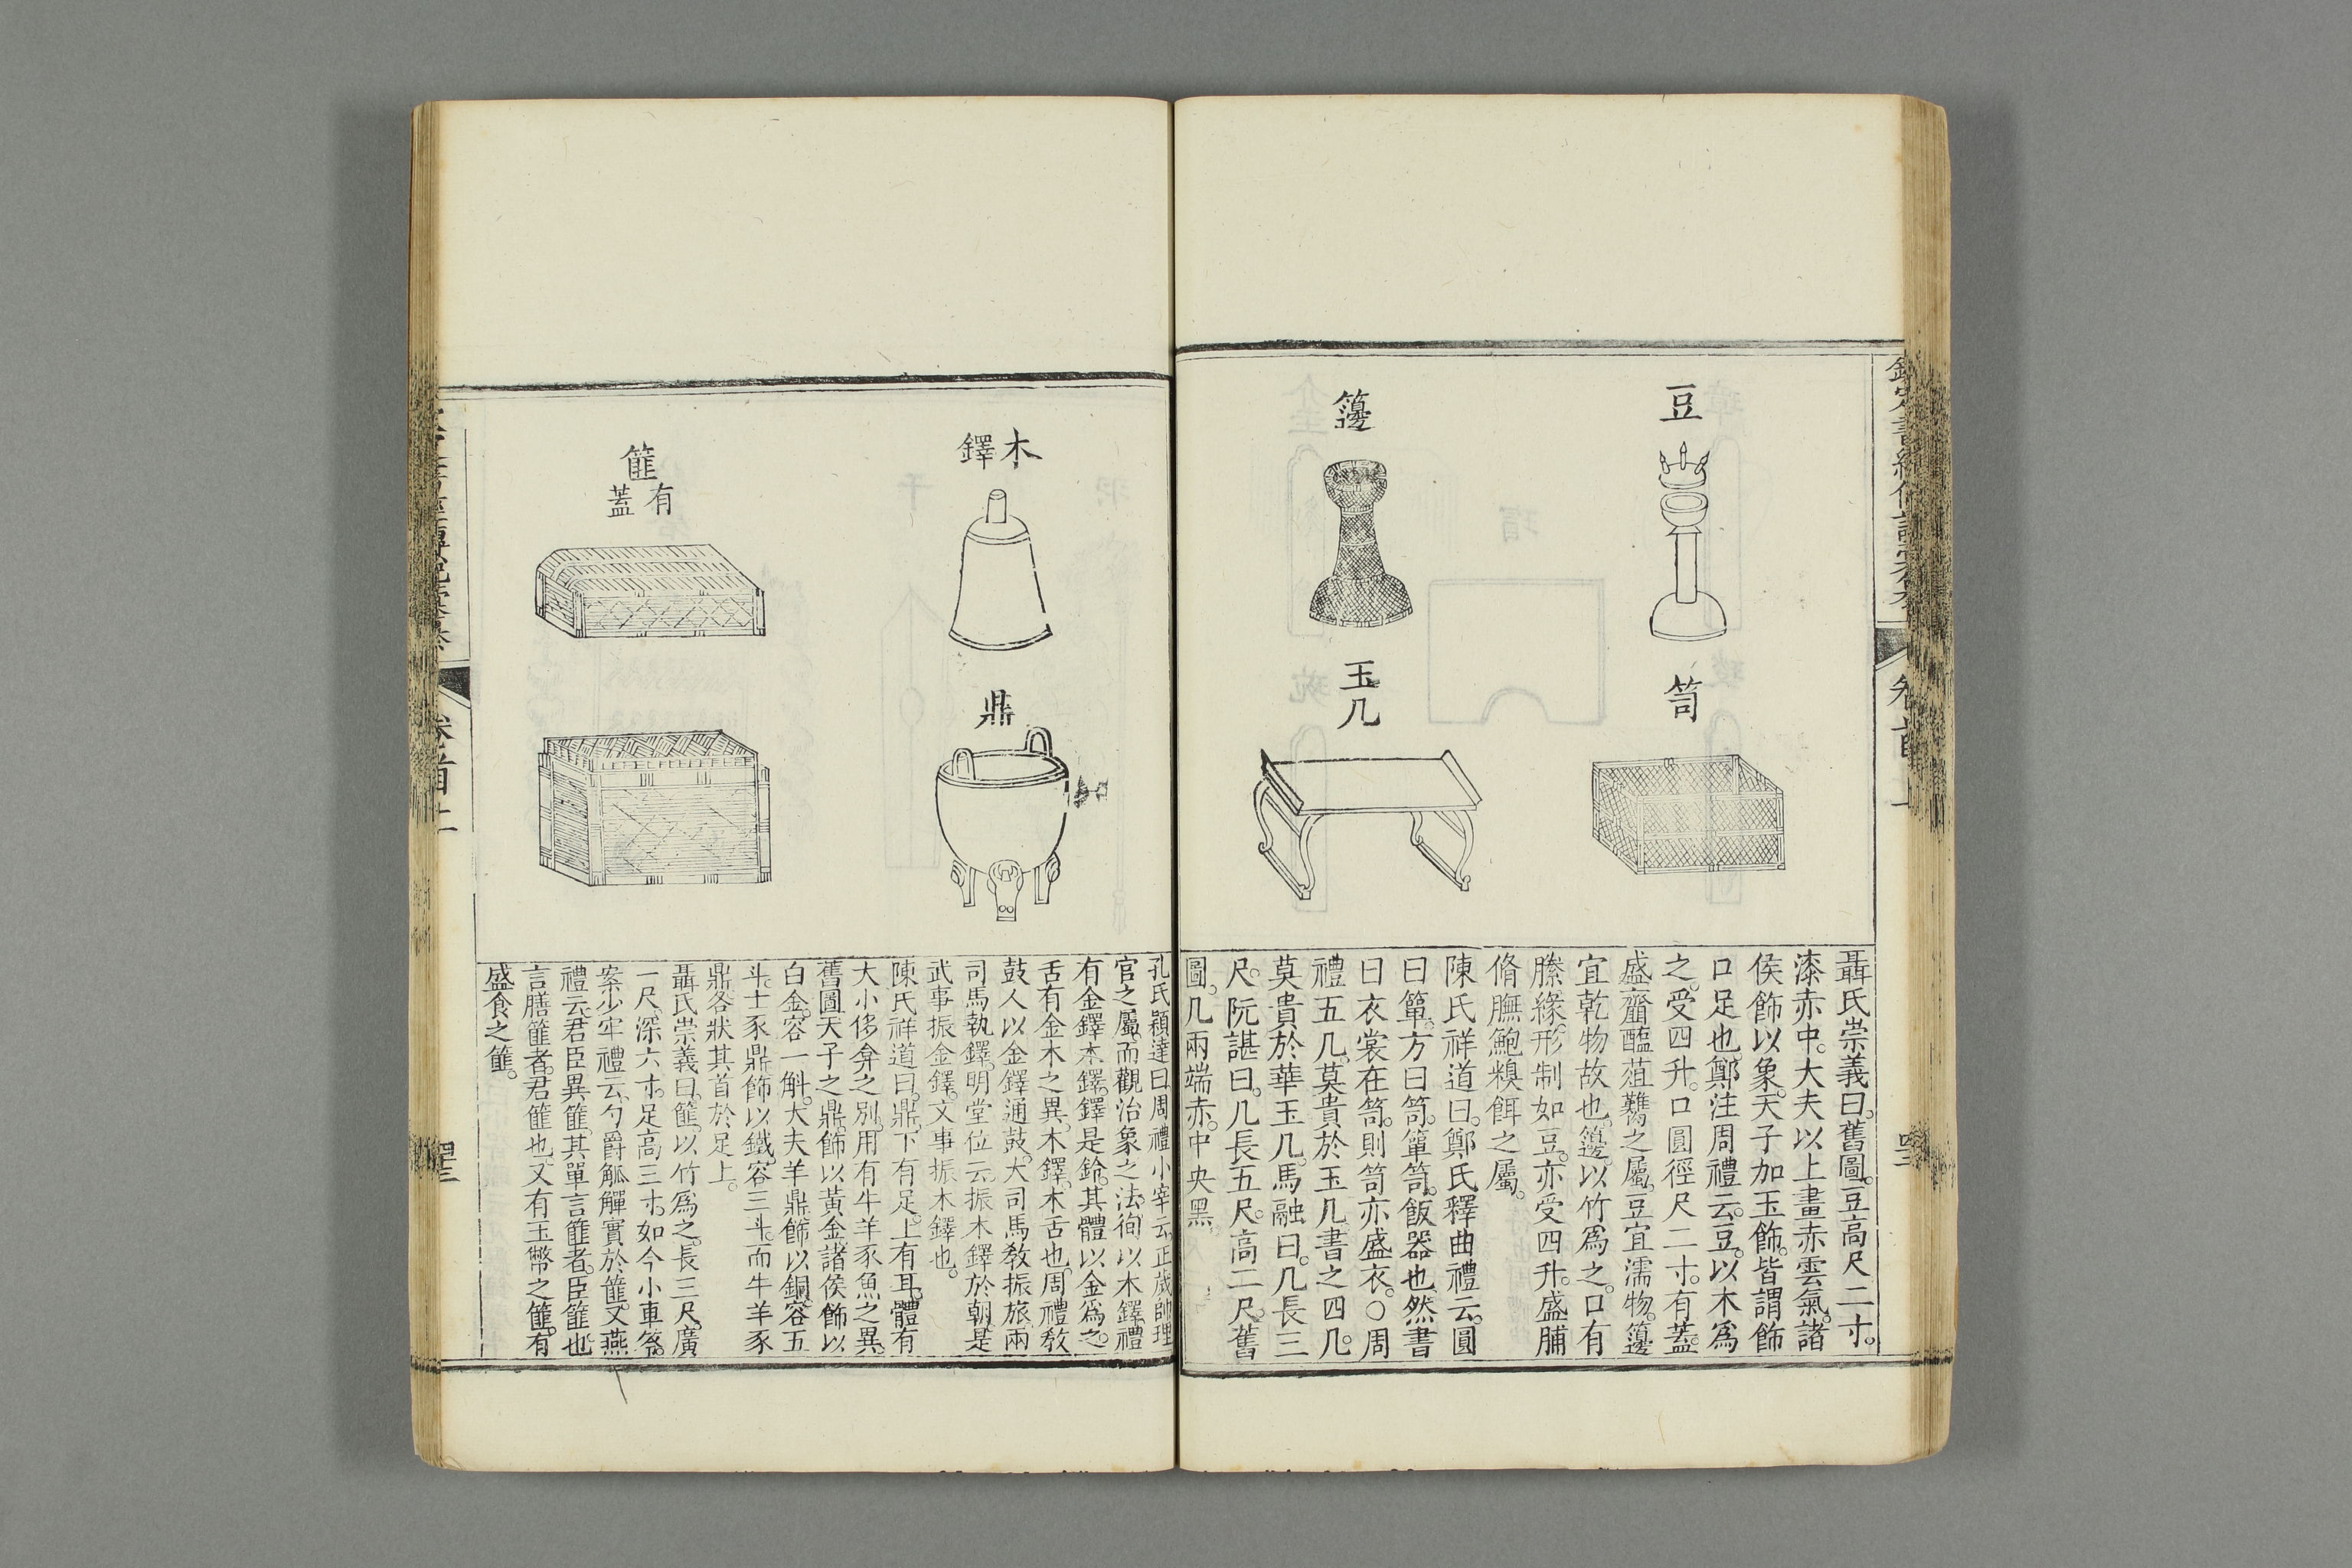 豆
笥
籩
玉几
聶氏崇義曰。舊圖。豆高尺二寸。
漆赤中。大夫以上畫赤雲氣。諸
侯飾以象。天子加玉飾。皆謂飾
口足也。鄭注周禮云。豆。以木爲
之。受四升。口圓徑尺二寸。有蓋。
盛齏醢菹鷩之屬。豆宜濡物。籩
宜乾物故也。籩。以竹爲之。口有
縢緣。形制如豆。亦受四升。盛脯
脩膴鮑糗餌之屬。
陳氏祥道曰。鄭氏釋曲禮云。圓
曰簞。方曰笥。簞笥。飯器也。然書
曰衣裳在笥。則笥亦盛衣。○周
禮五几。莫貴於玉几。書之四几。
莫貴於華玉几。馬融曰。几長三
尺。阮諶曰。几長五尺。高二尺。舊
圖。几兩端赤。中央黑。
卷首上
木鐸
鼎
篚
有蓋
孔氏穎達曰。周禮小宰云。正歲帥理
官之屬。而觀治象之法。徇以木鐸。禮
有金鐸木鐸。鐸是鈴。其體以金爲之。
舌有金木之異。木鐸。木舌也。周禮敎
鼓人以金鐸通鼓。大司馬敎振旅。兩
司馬執鐸。明堂位云。振木鐸於朝。是
武事振金鐸。文事振木鐸也。
陳氏祥道曰。鼎。下有足。上有耳。體有
大小侈弇之別。用有牛羊豕魚之異。
舊圖。天子之鼎。飾以黃金。諸侯飾以
白金。容一斛。大夫羊鼎。飾以銅。容五
斗。士豕鼎。飾以鐵。容三斗。而牛羊豕
鼎。各狀其首於足上。
聶氏崇義曰。篚。以竹爲之。長三尺。廣
一尺。深六寸。足高三寸。如今小車笭。
案少牢禮云。勺爵觚觶實於篚。又燕
禮云。君臣異篚。其單言篚者。臣篚也。
言膳篚者。君篚也。又有玉幣之篚。有
盛食之篚。
卷首上